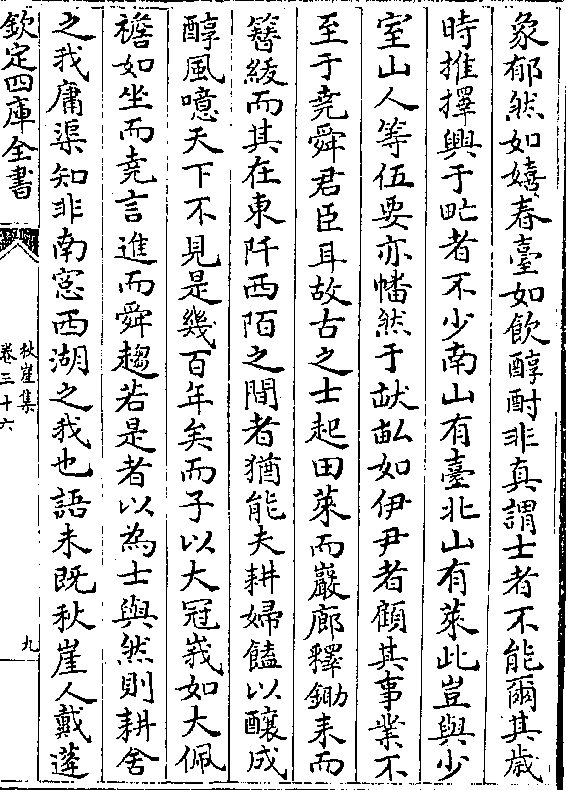 象郁然如嬉春臺如飲醇酎非真謂士者不能爾其歲
時推擇興于甿者不少南山有臺北山有萊此豈與少
室山人等伍要亦幡然于畎畝如伊尹者顧其事業不
至于堯舜君臣耳故古之士起田萊而巖廊釋鋤耒而
簪綾而其在東阡西陌之間者猶能夫耕婦饁以釀成
醇風噫天下不見是幾百年矣而子以大冠峩如大佩
襜如坐而堯言進而舜趨若是者以為士與然則耕舍
之我庸渠知非南窓西湖之我也語未既秋崖人戴蓬
欽定四庫全書
秋崖集
卷三十六
九